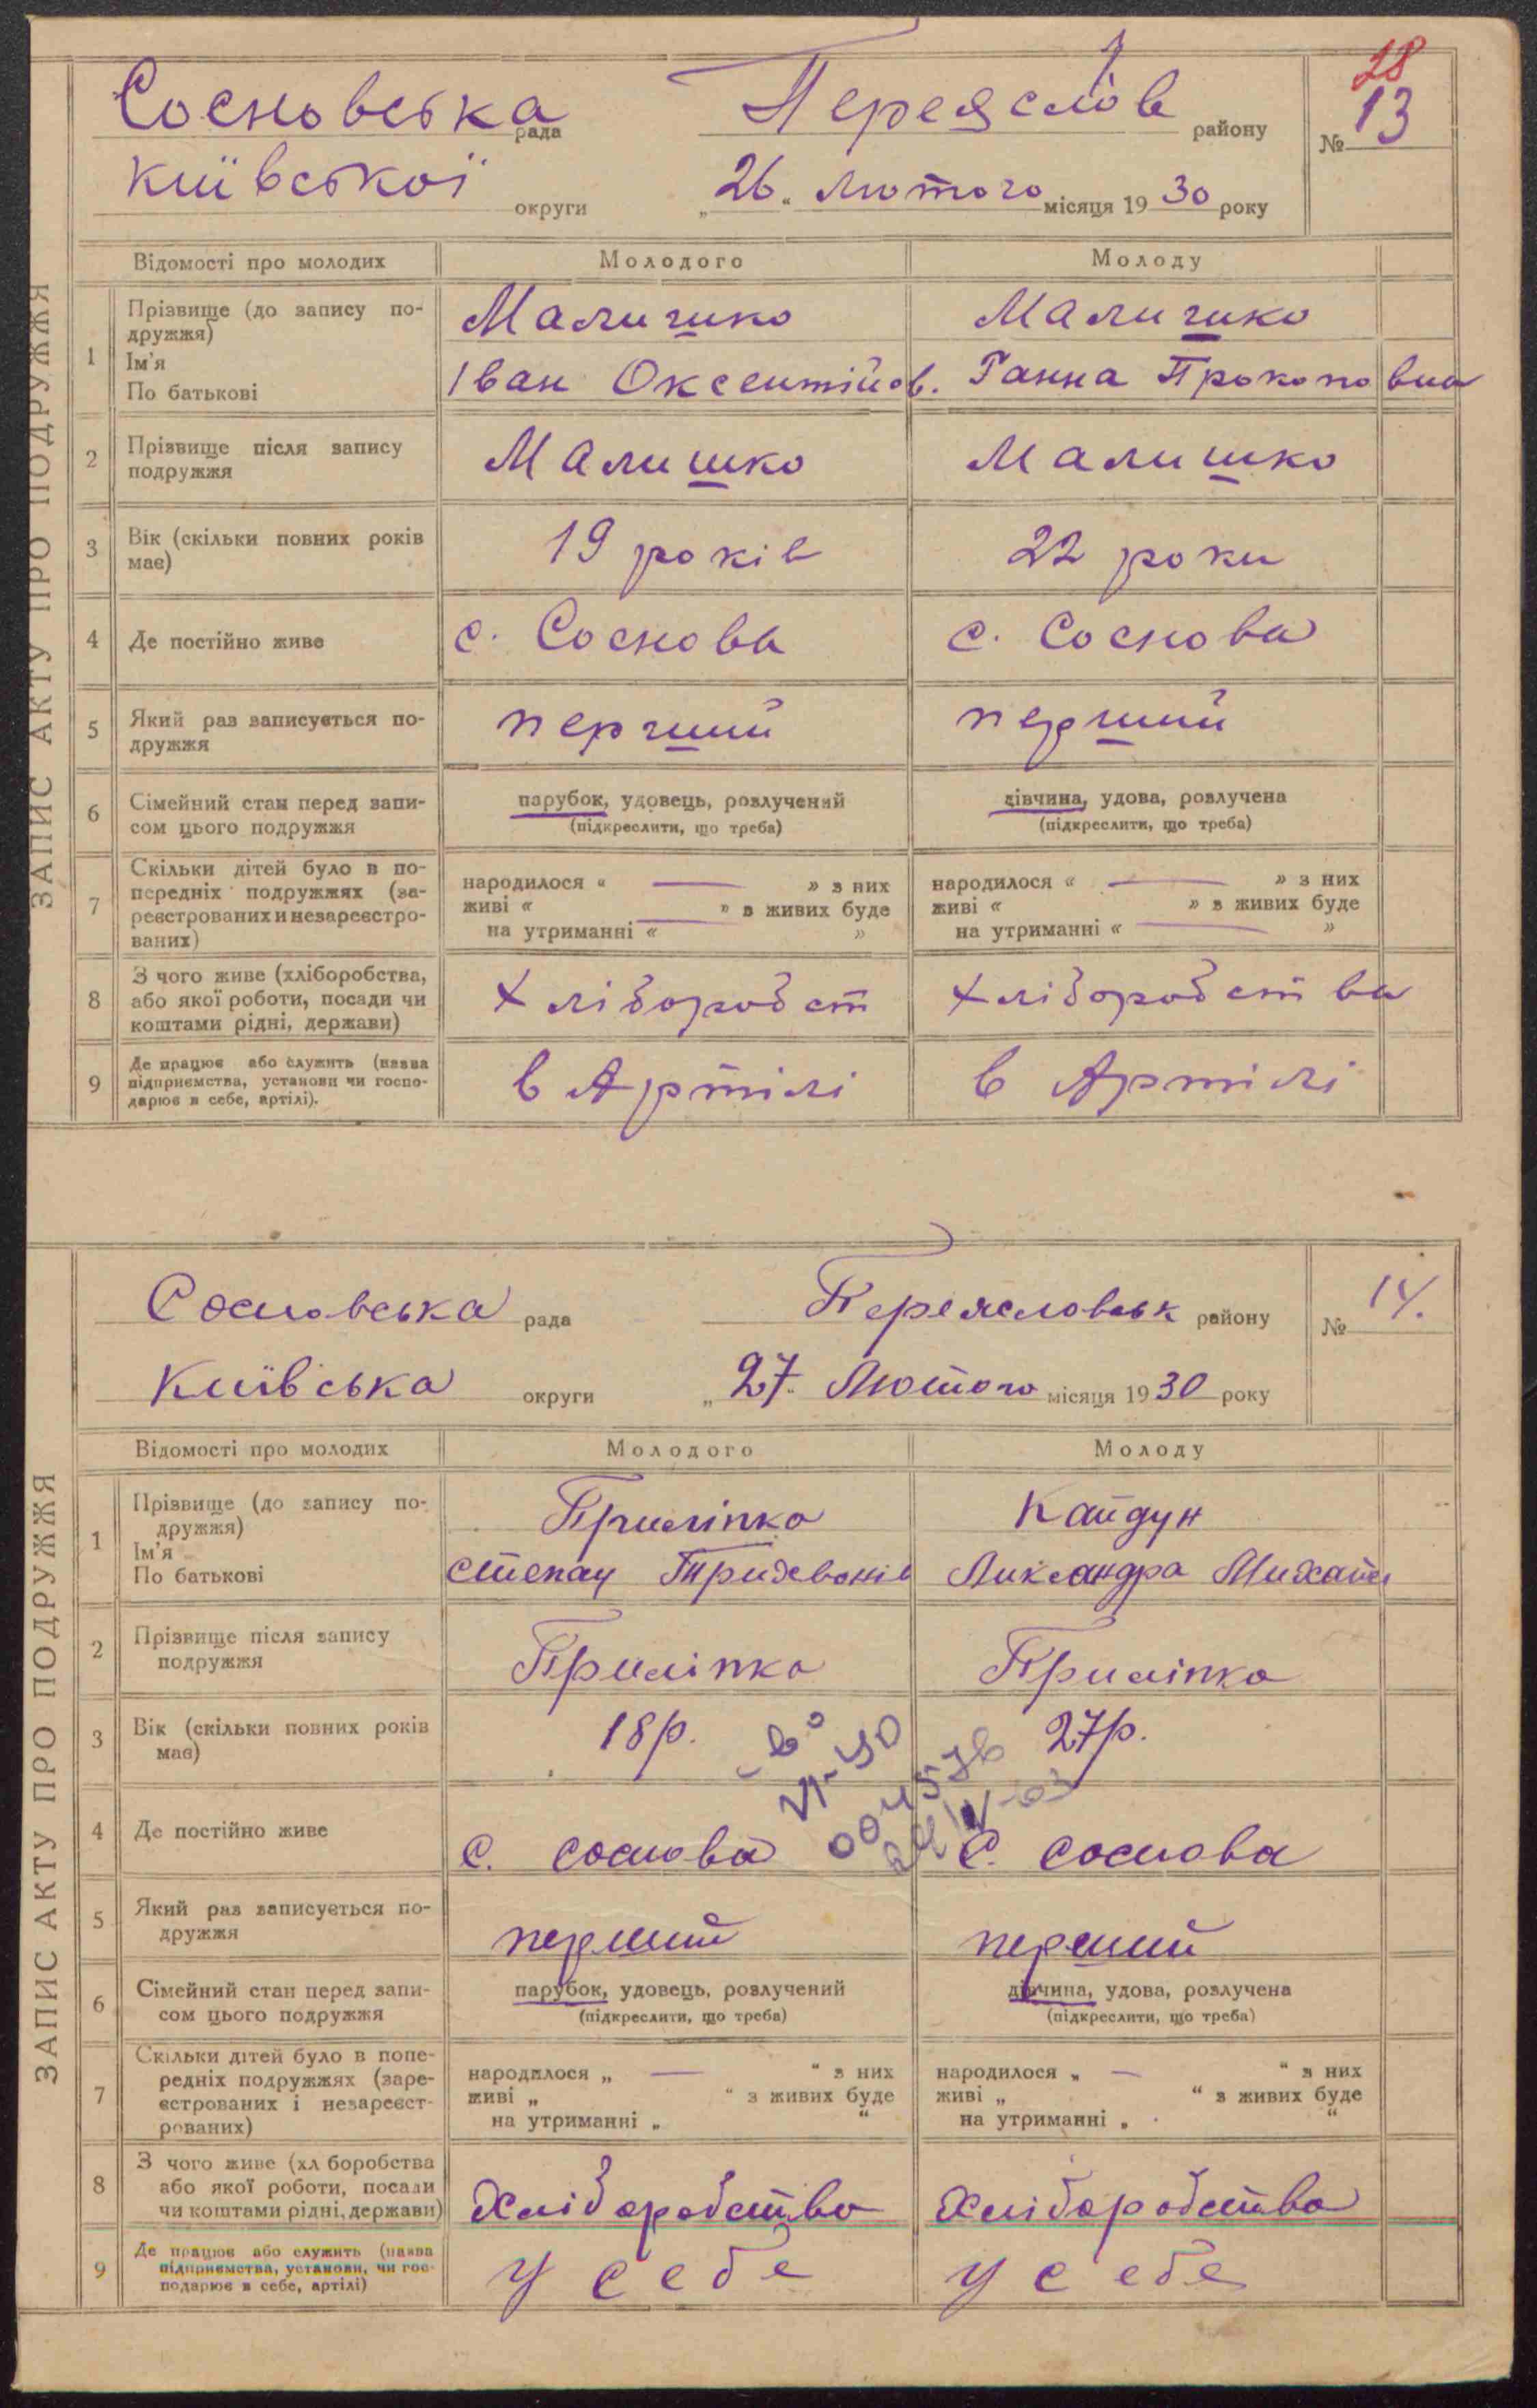 28
Сосновська рада Переяслів району № 13
Київської округи „26“ Лютого місяця 1930 року
ЗАПИС АКТУ ПРО ПОДРУЖЖЯ
Відомості про молодих Молодого Молоду
1 Прізвище (до запису подружжя) Малишко Малишко
Ім'я
По батькові Іван Оксентійов. Ганна Прокоповна
2 Прізвище після запису подружжя Малишко Малишко
3 Вік (скільки повних років має) 19 років 22 роки
4 Де постійно живе с. Соснова с. Соснова
5 Який раз записується подружжя перший перший
6 Сімейний стан перед записом цього подружжя парубок, удовець, розлучений (підкреслити, що треба) дівчина, удова, розлучена (підкреслити, що треба)
7 Скільки дітей було в попередніх подружжях (зареєстрованих и незареєстрованих) народилося « — » з них живі « » в живих буде на утриманні « » народилося « — » з них живі « » в живих буде на утриманні « — »
8 З чого живе (хліборобства, або якої роботи, посади чи коштами рідні, держави) Хліборобст Хліборобства
9 Де працює або служить (назва підприємства, установи чи господарює в себе, артілі). в Артілі в Артілі
Сосновська рада Переясловськ району № 14.
Київська округи „27. Лютого місяця 1930 року
ЗАПИС АКТУ ПРО ПОДРУЖЖЯ
Відомості про молодих Молодого Молоду
1 Прізвище (до запису подружжя) Приліпко Кайдун
Ім'я
По батькові Степан Александра Михайл
2 Прізвище після запису подружжя Приліпко Приліпко
3 Вік (скільки повних років має) 18р. 27р.
4 Де постійно живе с. Соснова с. Соснова
5 Який раз записується подружжя перший перший
6 Сімейний стан перед записом цього подружжя парубок, удовець, розлучений (підкреслити, що треба) дівчина, удова, розлучена (підкреслити, що треба)
7 Скільки дітей було в попередніх подружжях (зареєстрованих і незареєстрованих) народилося „ — “ з них живі „ “ з живих буде на утриманні „ “ народилося „ — “ з них живі „ “ з живих буде на утриманні „ “
8 З чого живе (хл боробства або якої роботи, посади чи коштами рідні, держави) Хліборобство Хліборобство
9 Де працює або служить (назва підприємства, установи, чи господарює в себе, артілі) у себе у себе